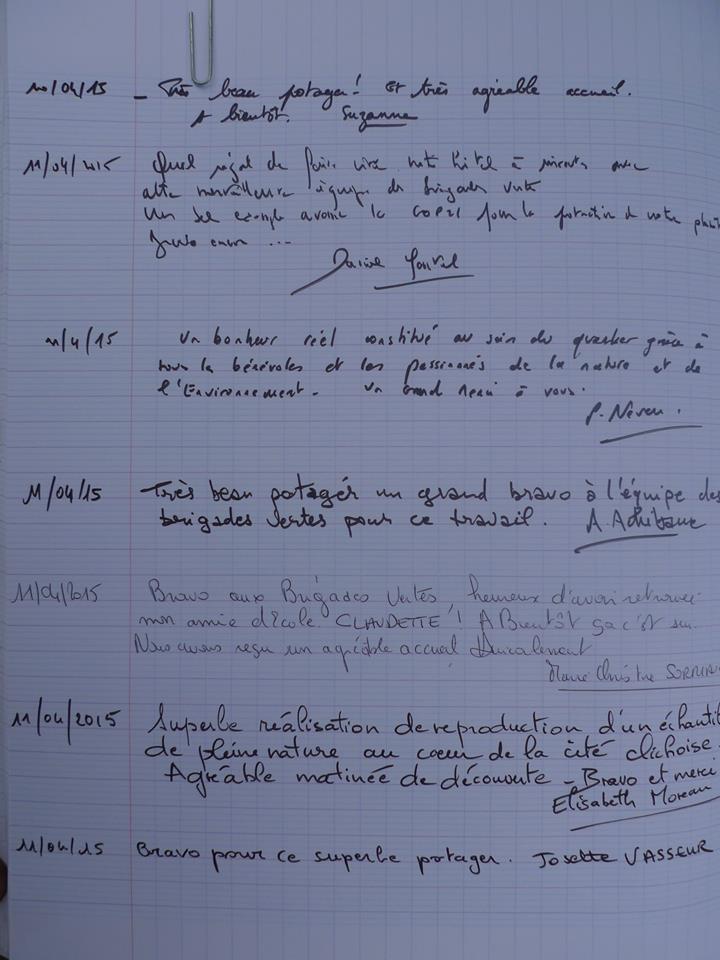 10/04/15 - Très beau potager! Et très agréable accueil.
A bientôt. Suzanne
11/04/2015 Quel régal de faire vivre notre hôtel à avec
merveilleuse équipe de brigades vertes
Un bel exemple avant la COP21 pour la protection de notre
...
11/4/15 Un bonheur réel constitué au sein du quartier grâce à
tous les bénévoles et les passionnés de la nature et de
l'Environnement. Un Grand Merci à vous.
P. Neveu.
11/04/15 Très beau potager un grand bravo à l'équipe des
brigades vertes pour ce travail. A.
11/04/2015 Bravo aux Brigades Vertes, heureux d'avoir retrouver
mon amie d'école CLAUDETTE! A Bientôt ça c'est sur.
Nous avons reçu un agréable accueil
Marie Christine
11/04/2015 Superbe réalisation de reproduction d'un échantil
de pleine nature au coeur de la cité clichoise.
Agréable matinée de découverte - Bravo et merci
Elisabeth Moreau
11/04/15 Bravo pour ce superbe potager. Josette VASSEUR